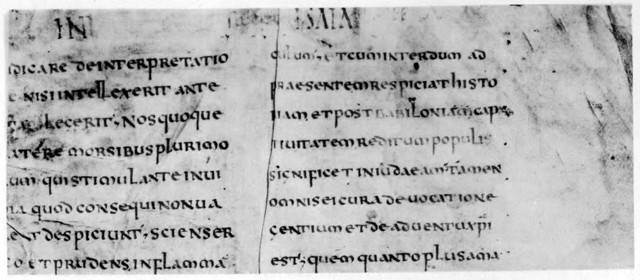 IN ISAIA
DICARE DE INTERPRETATIO
E NISI INTELLEXERIT ANTE
LEGERIT· NOS QUOQUE
ATERE MORSIBUS PLURIMO
UM· QUI STIMULANTE INUI
IA QUOD CONSEQUI NON UA
ENT DESPICIUNT· SCIENS ER
O ET PRUDENS IN FLAMMA
CULUM· ET CUM INTERDUM AD
PRAESENTEM RESPICIAT HISTO
RIAM ET POST BABILONIAM CAP
TIUITATEM REDITUM POPULIS
SIGNIFICET IN IUDAEAM TAMEN
OMNIS EI CURA DE UOCATIONE
GENTIUM ET DE ADUENTU XPI
EST· QUEM QUANTO PLUS AMA